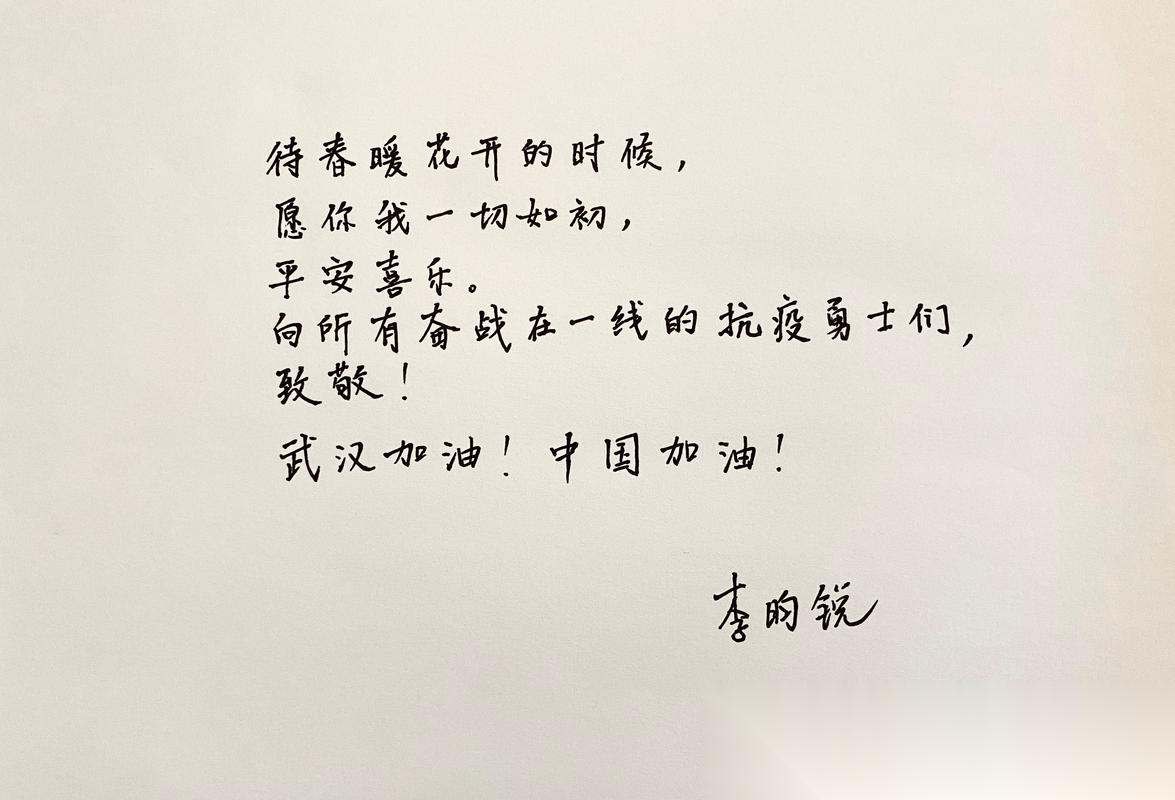 待春暖花开的时候，
愿你我一切如初，
平安喜乐。
向所有奋战在一线的抗疫勇士们，
致敬！
武汉加油！中国加油！
李昀锐